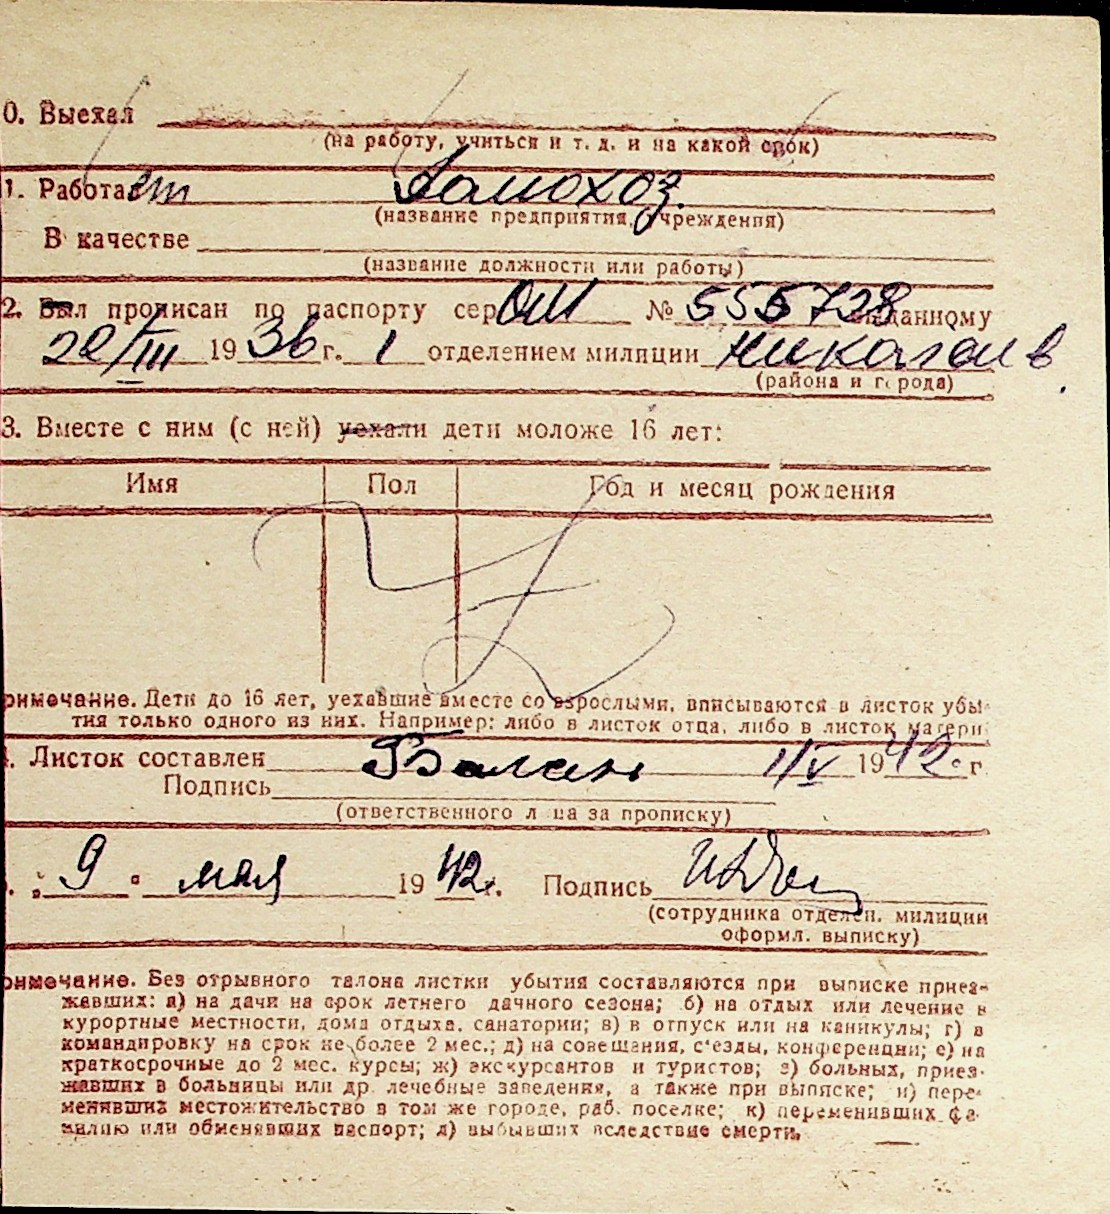 0. Выехал
(на работу, учиться и т. д. и на какой срок)
1. Работает Домохоз.
(название предприятия, учреждения)
В качестве
(название должности или работы)
2. Был прописан по паспорту сер. ОЖ № 555728 выданному
22/III 1936 г. 1 отделением милиции Николаев
(района и города)
3. Вместе с ним (с ней) уехали дети моложе 16 лет:
Имя Пол Год и месяц рождения
римечание. Дети до 16 лет, уехавшие вместе со взрослыми, вписываются в листок убы-
тия только одного из них. Например: либо в листок отца, либо в листок матери
. Листок составлен 1/V 1942 г.
Подпись
(ответственного лица за прописку)
. " 9 " мая 1942 г. Подпись
(сотрудника отделен. милиции
оформл. выписку)
римечание. Без отрывного талона листки убытия составляются при выписке приез-
жавших: а) на дачи на срок летнего дачного сезона; б) на отдых или лечение в
курортные местности, дома отдыха, санатории; в) в отпуск или на каникулы; г) в
командировку на срок не более 2 мес.; д) на совещания, с'езды, конференции; е) на
краткосрочные до 2 мес. курсы; ж) экскурсантов и туристов; з) больных, приез-
жавших в больницы или др. лечебные заведения, а также при выписке; и) пере-
менивших местожительство в том же городе, раб. поселке; к) переменивших фа-
милию или обменявших паспорт; л) выбывших вследствие смерти.